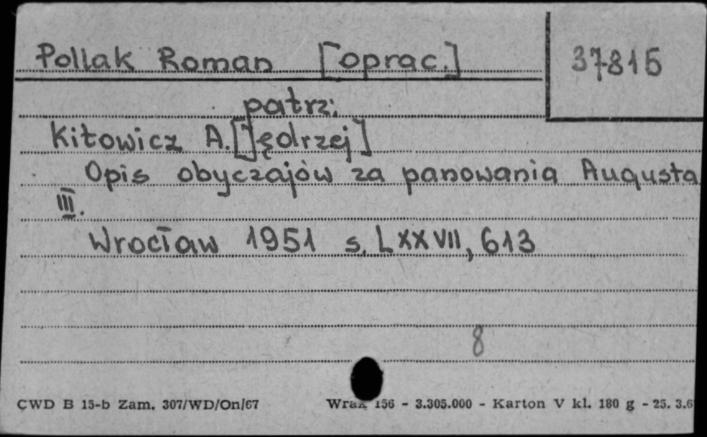 Pollak Roman [oprac.] 37815
patrz:
Kitowicz A.[Jędrzej]
Opis obyczajów za panowania Augusta
III.
Wrocław 1951 s. LXXVII, 613
8
CWD B 15-b Zam. 307/WD/On/67 Wrak 156 - 3.305.000 - Karton V kl. 180 g - 25. 3.6